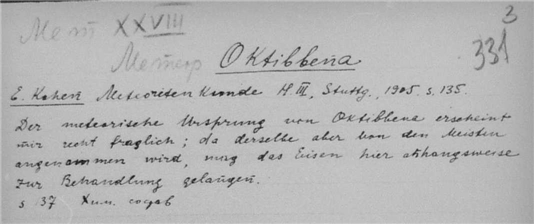 3
Мет XXVIII
331
Метеор
Oktibbena
E. Kohen Meteoritenkunde H III, Stuttg, 1905. s. 135.
Der meteorische Ursprung von Oktibbena erscheint
mir recht fraglich; da derselbe aber von den Meisten
angenommen wird, mag das Eisen hier anhangsweise
zur Behandlung gelangen.
s 137 Хим. состав